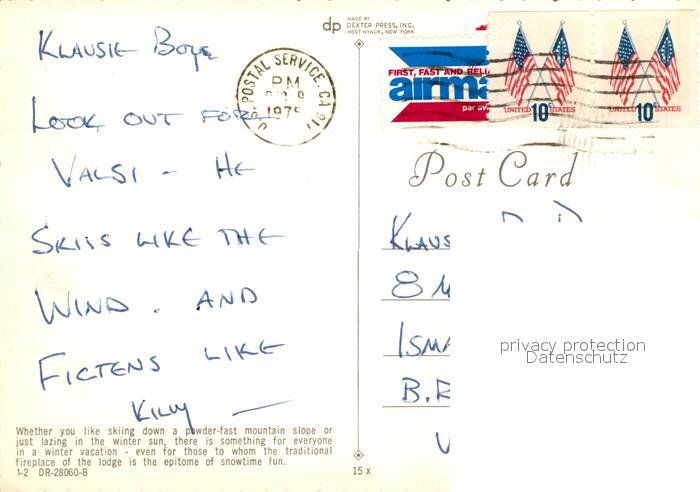 KLAUSIE BOYE
LOOK OUT FOR
VALSI - HE
SKIIS LIKE THE
WIND. AND
FICTENS LIKE
KILLY —
Whether you like skiing down a powder-fast mountain slope or
just lazing in the winter sun, there is something for everyone
in a winter vacation - even for those to whom the traditional
fireplace of the lodge is the epitome of snowtime fun.
1-2 DR-28060-B
dp MADE BY
DEXTER PRESS, INC.
WEST NYACK, NEW YORK
U.S. POSTAL SERVICE, CA
PM
1975
FIRST, FAST AND RELI
airma
par av
UNITED STATES
10c
UNITED STATES
10c
Post Card
KLAUS
8 M
ISMA
B.R
15 x
privacy protection
Datenschutz